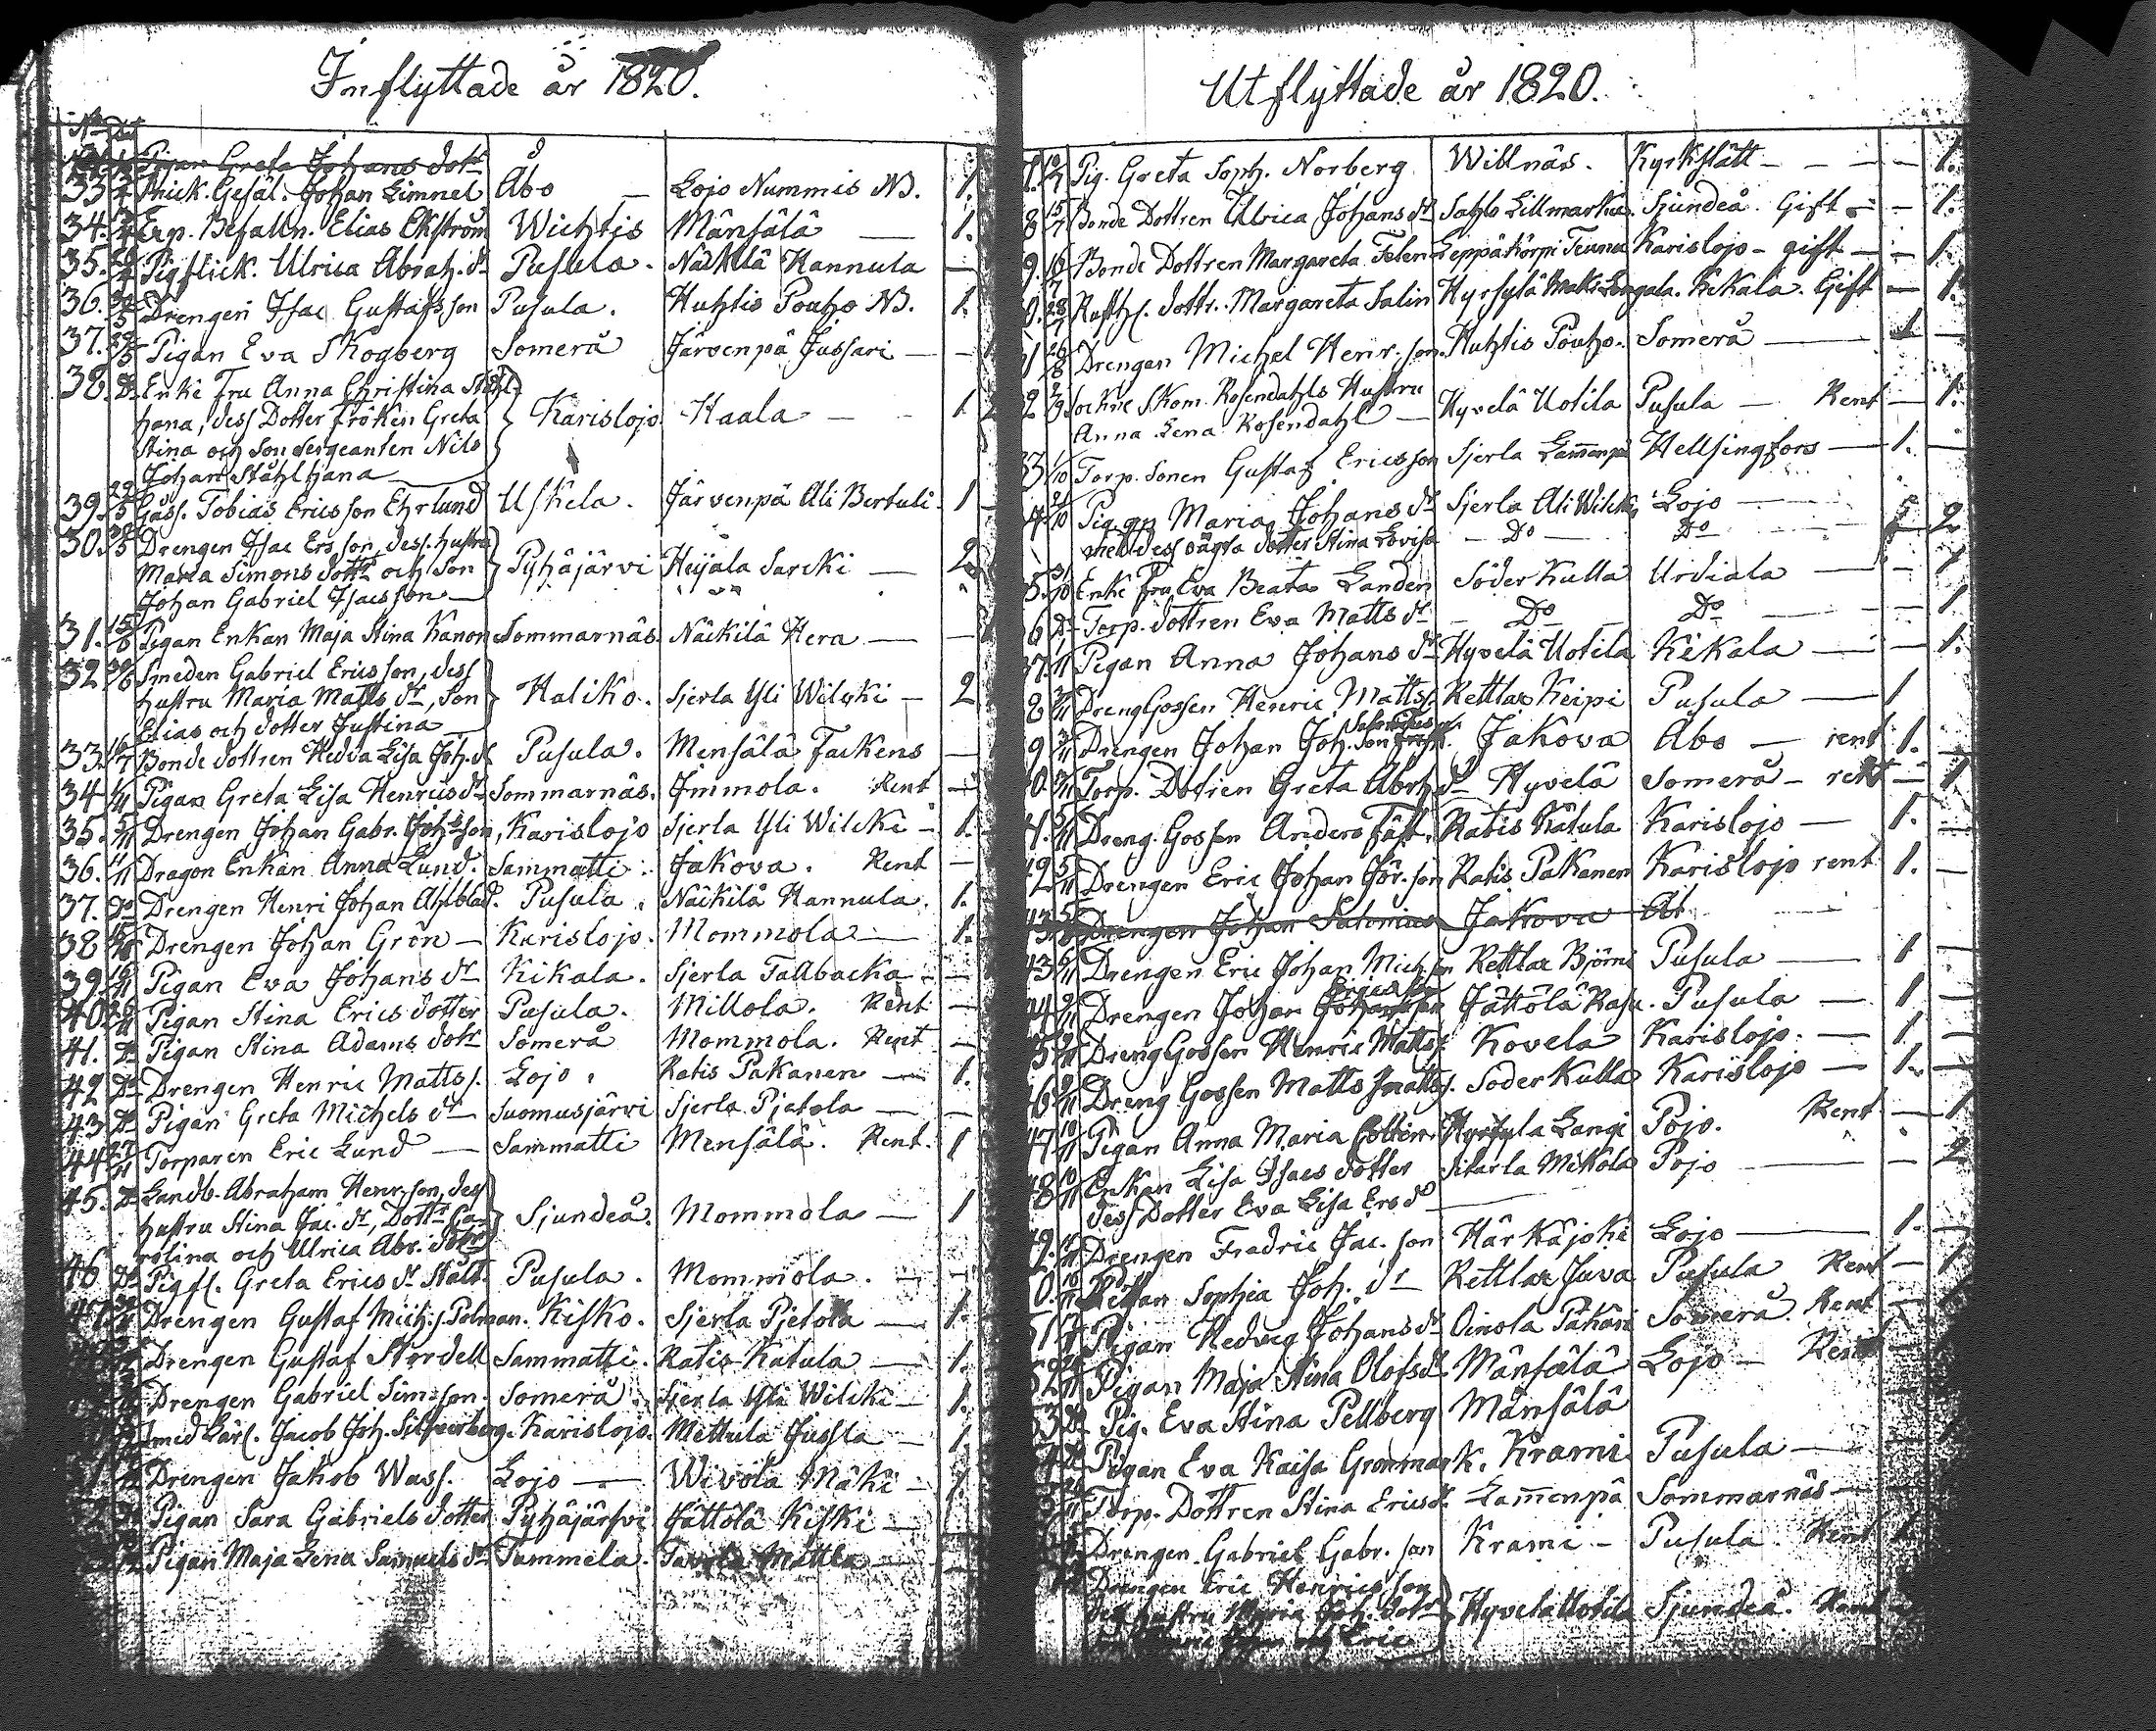 Inflyttade år 1820.
Pigan Greta Johans dotr
33 Snick. Gesäl. Johan Limnel Åbo — Lojo Nummis NB. 1.
34. Exp. Befalln. Elias Ekström Wichtis Mänsälä — 1.
35. Pigflick. Ulrica Abrah. dr Pusula. Näckilä Hannula —
36. Drengen Isac Gustafsson Pusula. Huhtis Pouho NB. 1.
37. Pigan Eva Skogberg Somerå Järvenpä Jussari —
38. Do Enke Fru Anna Christina Stål-
hana, dess Dotter Fröken Greta Karislojo Haala — 1
Stina och Son Sergeanten Nils
Johan Ståhlhana
39. 29/5 Gäss. Tobias Ericsson Ehrlund Uskela. Järvenpä Ali Bertuli. 1
30. Drengen Isac Ersson, dess hustru
Maria Simons dottr och Son Pyhäjärvi Heijala Sarcki — 2
Johan Gabriel Isacsson
31. 15/6 Pigan Enkan Maja Stina Kanon Sommarnäs Näckilä Hera —
32 30/6 Smeden Gabriel Ericsson, dess
hustru Maria Matts dr, Son Haliko. Sjerla Yli Wilcki — 2
Elias och dotter Justina
33. 16/7 Bonde dottren Hedda Lisa Joh. dr Pusula. Mensälä Fackens —
34 Pigan Greta Lisa Henrics dr Sommarnäs. Immola. Rent —
35. 5/11 Drengen Johan Gabr. Johsson, Karislojo Sjerla Yli Wilcki — 1.
36. Dragon Enkan Anna Lund. Sammatti. Jakova. Rent —
37. Do Drengen Henri Johan Ahlblad. Pusula. Näckilä Hannula. 1.
38 Drengen Johan Grön — Karislojo. Mommola — 1.
39. 16/11 Pigan Eva Johans dr Kikala. Sjerla Tallbacka —
40. 26/11 Pigan Stina Erics dotter Pusula. Millola. Rent —
41. Do Pigan Stina Adams dotr Somerå Mommola. Rent —
42 Do Drengen Henric Matts s. Lojo. Ratis Pakanen — 1.
43 Do Pigan Greta Michels dr Suomusjärvi Sjerla Pjetola —
44 27/11 Torparen Eric Lund — Sammatti Mensälä. Rent. 1
45. Do Landb. Abraham Henr. son, dess
hustru Stina Jac. dr, Dottr Ca- Sjundeå. Mommola — 1
rolina och Ulrica Abr. dotr
46 Do Pigfl. Greta Erics dr Stålt. Pusula. Mommola. —
47. Drengen Gustaf Mich. s. Polman. Kisko. Sjerla Pjetola — 1.
Drengen Gustaf Stordell Sammatti. Ratis Katula — 1.
Drengen Gabriel Simsson. Somerå. Sjerla Yli Wilcki — 1.
Smed Lärl. Jacob Joh. Silfverberg. Karislojo. Mettula Jussla — 1.
Drengen Jakob Wass. Lojo — Wivola Mäki — 1.
Pigan Sara Gabriels dotter Pyhäjärfvi Jättölä Kiski —
Pigan Maja Lena Samuels dr Tammela. Tavola Mettla
Utflyttade år 1820.
Pig. Greta Soph. Norberg Willnäs. Kyrkslätt — 1.
8 15/7 Bonde Dottren Ulrica Johans dr Sahlo Lillmarku. Sjundeå. Gift — 1.
9. 16/7 Bonde Dottren Margareta Felen Leppäkorpi Teuna Karislojo — gift — 1.
0. 28/7 Rusth. dottr. Margareta Salin Hyrsylä Maks Longala. Kikala. Gift — 1.
1 Drengen Michel Henr. son. Huhtis Pouho. Somerå — 1 —
2 Sockne Skom. Rosendahls Hustru
Anna Lena Rosendahl — Hyvelä Uotila Pusula — Rent — 1.
3 1/10 Torp. Sonen Gustaf Ericsson Sjerla Lammenpä Hellsingfors — 1. —
4 Pigan Maria Johans dr Sjerla Ali Wilcki, Lojo —
med dess oägta dotter Stina Lovisa — Do — Do 2
5. 31/10 Enke Fru Eva Beata Landen Söderkulla Urdiala — 1
6 Do Torp. dottren Eva Matts dr — Do — Do — 1
37. Pigan Anna Johans dr Hyvelä Uotila Kikala — 1.
8 DrengGossen Henric Mattss. Rettlax Keipi Pusula — 1
9 Drengen Johan Joh. son Jakova Åbo — rent 1.
0. Torp. Dotren Greta Abrh dr Hyvelä Somerå — rent — 1
4. Dreng. Gossen Anders Fäst. Ratis Katula Karislojo — 1.
42 5/11 Drengen Eric Johan Jör. son Ratis Pakanen Karislojo rent 1. —
43 5 Drengen Johan Salomius Jakova Åb
43 Drengen Eric Johan Mich. son Rettlax Björni Pusula — 1 —
44 Drengen Johan Ericsson Jättölä Rasu. Pusula — 1 —
5 DrengGossen Henric Matts s. Kovela Karislojo. — 1 —
6. 9/11 Dreng Gossen Matts Matts s. Söderkulla Karislojo — 1. —
47 10/11 Pigan Anna Maria Collin. Hyrsyla Langi Pojo. Rent — 1
48 10/11 Enkan Lisa Isacs dotter Sitarla Mikola Pojo — 2
dess Dotter Eva Lisa Ers dr
49. Drengen Fredric Jac. son Härkäjoki Lojo — 1. —
0. Sophia Joh. dr Rettlax Juva Pusula Rent — 1
51 Pigan Hedvig Johans dr Oinola Pakari Somerå. Rent — 1
52 Pigan Maja Stina Olofs dr Mänsälä Lojo — Rent —
53 Do Pig. Eva Stina Pellberg Mänsälä
Do Pigan Eva Kaisa Gronman K. Krami Pusula —
Torp. Dottren Stina Erics dr Lammenpä Sommarnäs —
Drengen Gabriel Gabr. son Krami — Pusula. Rent
Drengen Eric Henricsson
dess hustru Maria Joh. dotr Hyvelä Uotila Sjundeå. Rent
Eric